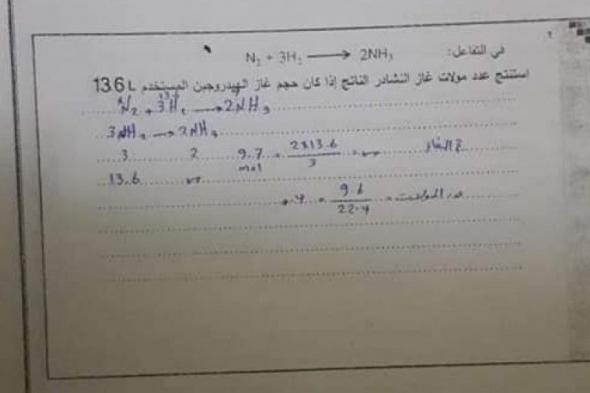 في التفاعل: N₂ + 3H₂ ⟶ 2NH₃
استنتج عدد مولات غاز النشادر الناتج إذا كان حجم غاز الهيدروجين المستخدم 13.6 L
N₂ + 3H₂ ⟶ 2NH₃
3H₂ ⟶ 2NH₃
3 2 9.7 = 2x13.6 / 3 = س
mol
13.6 س
عدد المولات = 9.6 / 22.4 = 0.4